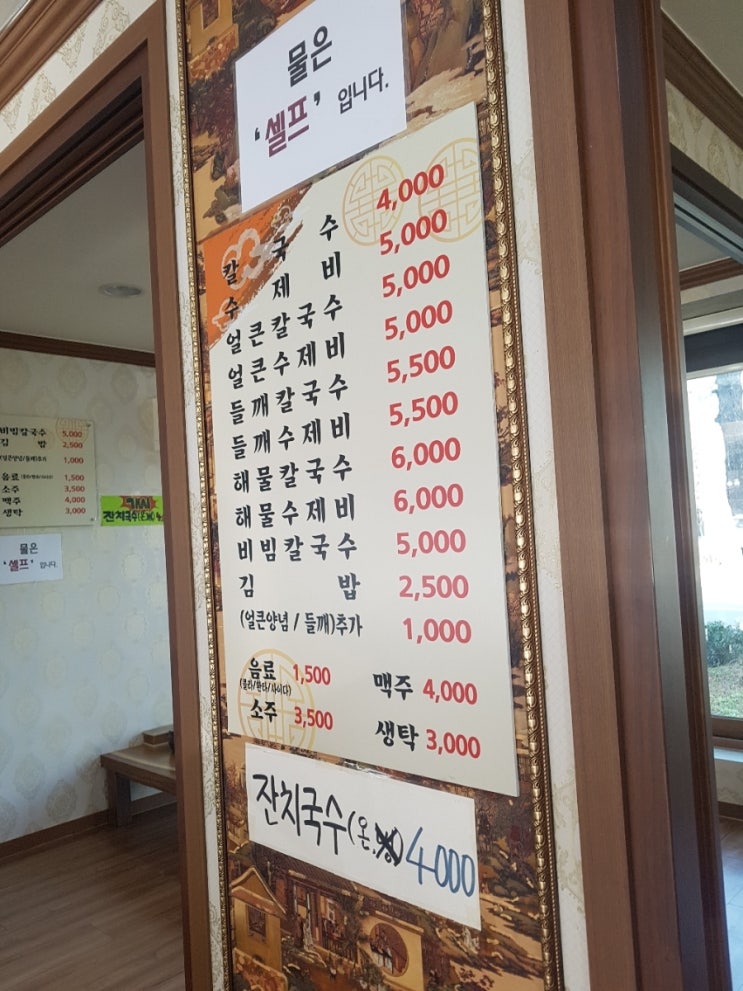 물은
'셀프' 입니다.
칼국수 4,000
수제비 5,000
얼큰칼국수 5,000
얼큰수제비 5,000
들깨칼국수 5,500
들깨수제비 5,500
해물칼국수 6,000
해물수제비 6,000
비빔칼국수 5,000
김밥 2,500
(얼큰양념 / 들깨)추가 1,000
음료 1,500 맥주 4,000
(콜라/환타/사이다)
소주 3,500 생탁 3,000
잔치국수(온.) 4000
비빔칼국수 5,000
김밥 2,500
(얼큰양념/들깨)추가 1,000
음료 (콜라/환타/사이다) 1,500
소주 3,500
맥주 4,000
생탁 3,000
잔치국수
물은
'셀프' 입니다.